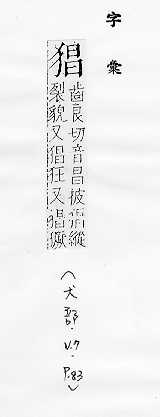 字彙
猖
齒良切音昌披猖縱
裂貌又猖狂又猖獗
(犬部.V.7.P.83)